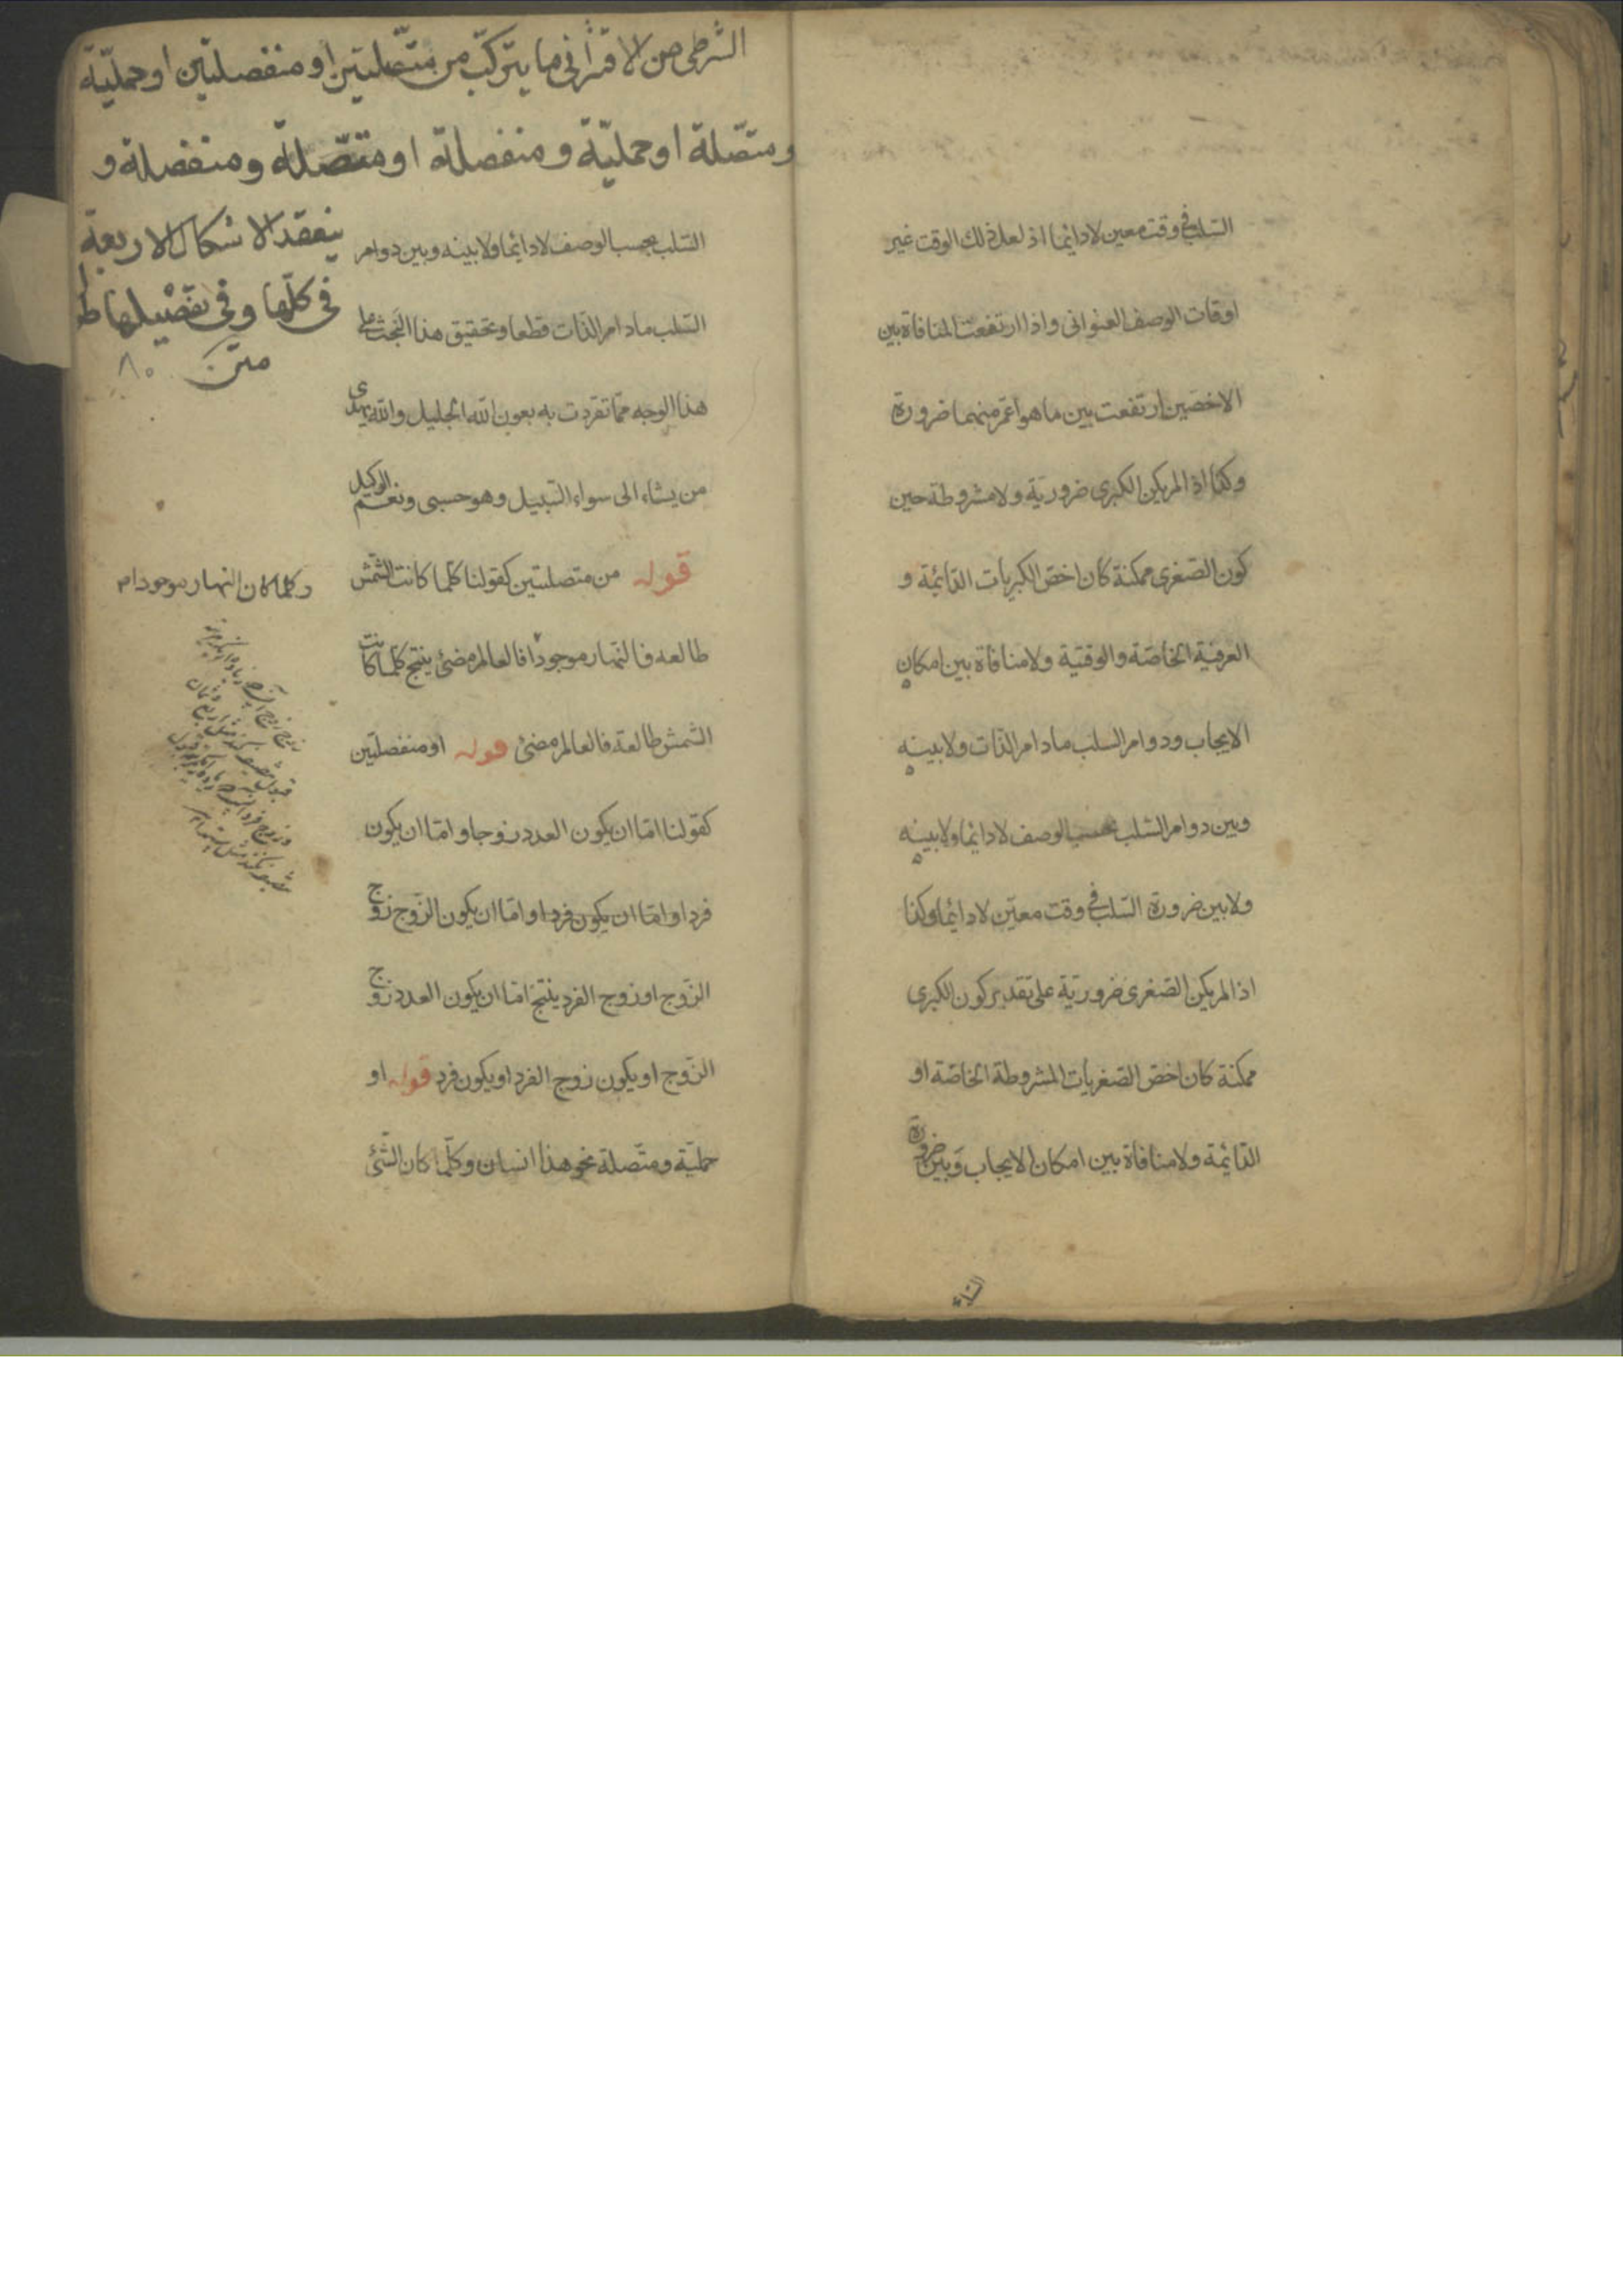 السلب فى وقت معين لا دائما اذ لعل ذلك الوقت غير
اوقات الوصف العنوانى واذا ارتفعت المنافاة بين
الاخصين ارتفعت بين ما هو اعم منهما ضرورة
وكذا اذا لم يكن الكبرى ضرورية ولا مشروطة حين
كون الصغرى ممكنة كان اخص الكبريات الدائمة و
العرفية الخاصة والوقتية ولا منافاة بين امكان
الايجاب ودوام السلب مادام الذات ولا بينه
وبين دوام السلب بحسب الوصف لا دائما ولا بينه
ولا بين ضرورة السلب فى وقت معين لا دائما وكذا
اذا لم يكن الصغرى ضرورية على تقدير كون الكبرى
ممكنة كان اخص الصغريات المشروطة الخاصة او
الدائمة ولا منافاة بين امكان الايجاب وبين ضرورة
الشرطى من الاقترانى ما يتركب من متصلتين او منفصلتين او حملية
ومتصلة او حملية ومنفصلة او متصلة ومنفصلة و
ينعقد الاشكال الاربعة
فى كلها وفى تفصيلها ط
متن ٨٠
السلب بحسب الوصف لا دائما ولا بينه وبين دوام
السلب مادام الذات قطعا وتحقيق هذا البحث على
هذا الوجه مما تفردت به بعون الله الجليل والله يهدى
من يشاء الى سواء السبيل وهو حسبى ونعم الوكيل
قوله من متصلتين كقولنا كلما كانت الشمش
طالعه فالنهار موجودا فالعالم مضئ ينتج كلما كانت
الشمش طالعة فالعالم مضئ قوله او منفصلتين
كقولنا اما ان يكون العدد زوجا واما ان يكون
فردا واما ان يكون فردا واما ان يكون الزوج زوج
الزوج او زوج الفرد ينتج اما ان يكون العدد زوج
الزوج او يكون زوج الفرد او يكون فرد قوله او
حملية ومتصلة نحو هذا انسان وكلما كان الشئ
وكلما كان النهار موجودا م